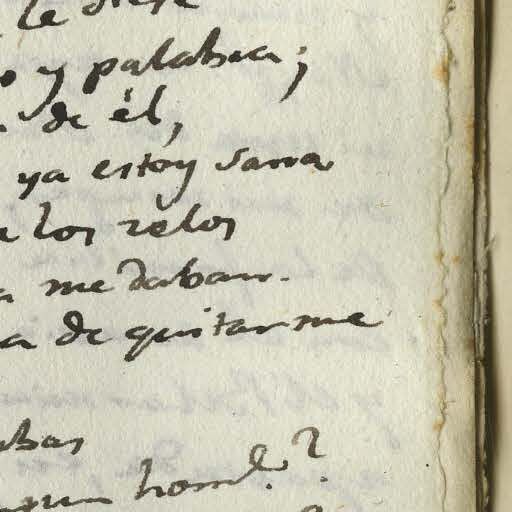 le diese
y palabra;
de él,
ya estoy sana
los zelos
me daban.
de quitarme
abas
homb.e?